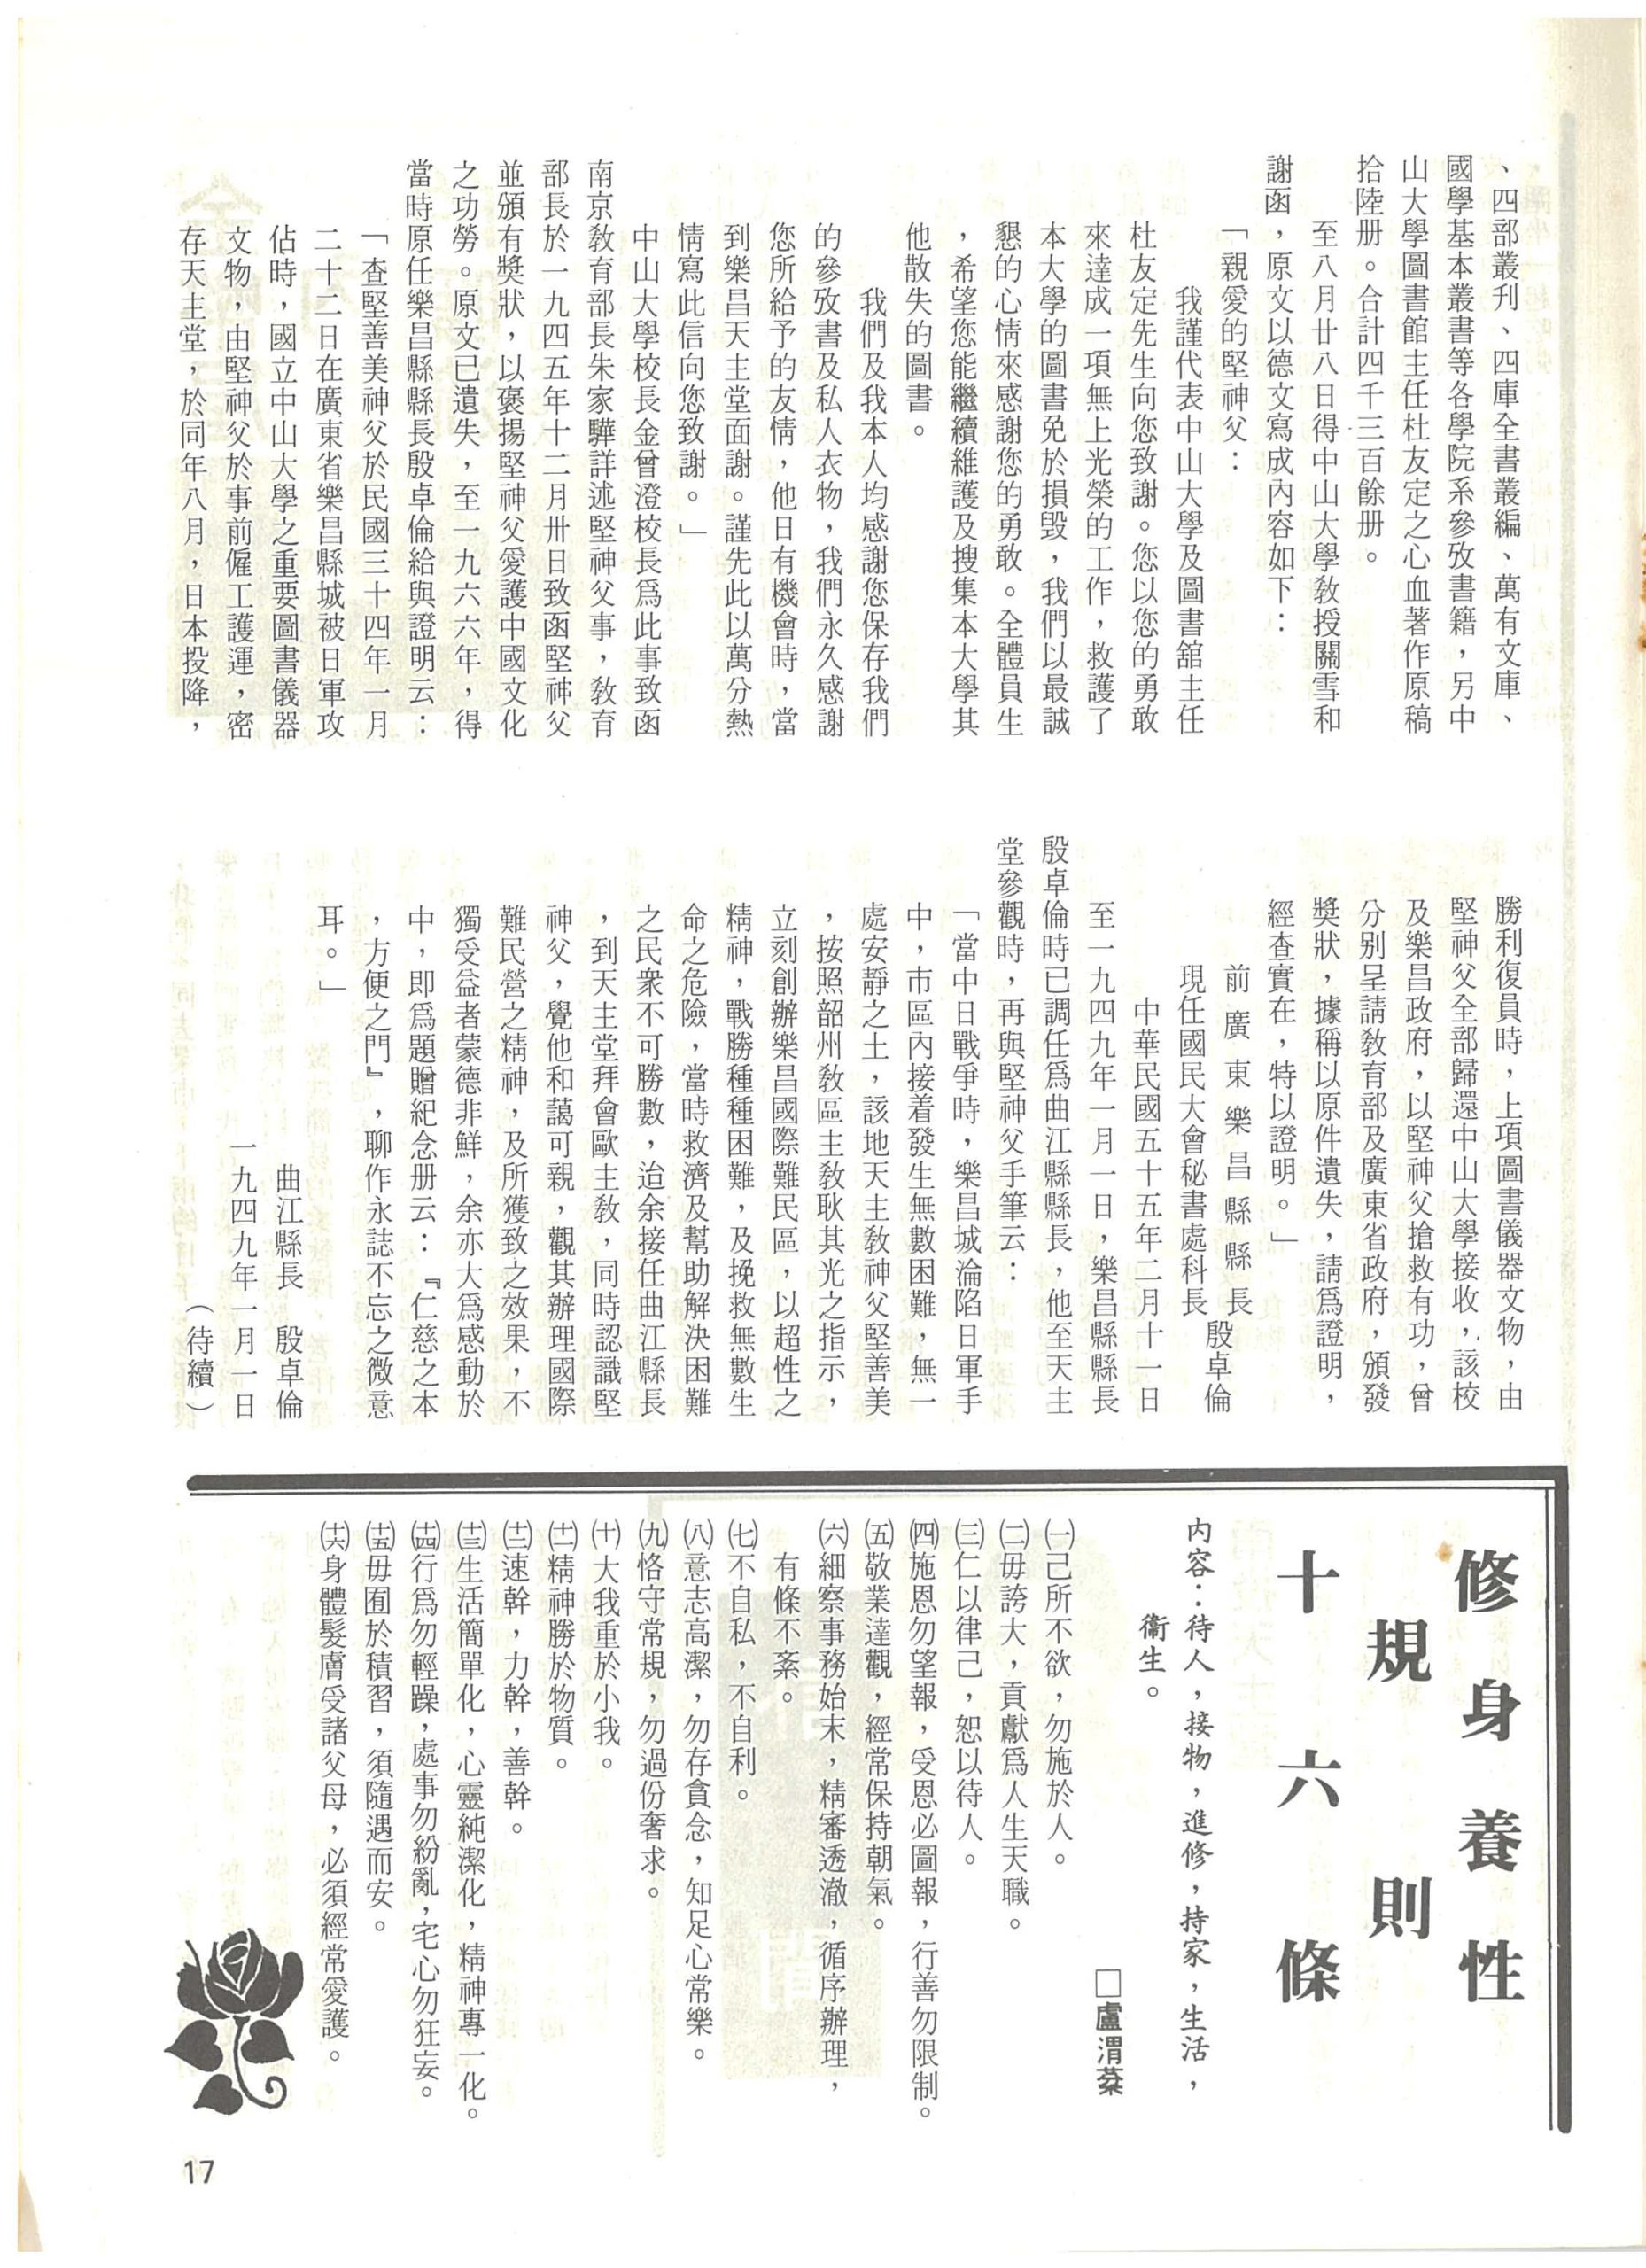 、四部叢刋、四庫全書叢編、萬有文庫、
國學基本叢書等各學院系參攷書籍，另中
山大學圖書館主任杜友定之心血著作原稿
拾陸册。合計四千三百餘册。
至八月廿八日得中山大學敎授關雪和
謝函，原文以德文寫成內容如下：
「親愛的堅神父：
我謹代表中山大學及圖書舘主任
杜友定先生向您致謝。您以您的勇敢
來達成一項無上光榮的工作，救護了
本大學的圖書免於損毀，我們以最誠
懇的心情來感謝您的勇敢。全體員生
，希望您能繼續維護及搜集本大學其
他散失的圖書。
我們及我本人均感謝您保存我們
的參攷書及私人衣物，我們永久感謝
您所給予的友情，他日有機會時，當
到樂昌天主堂面謝。謹先此以萬分熱
情寫此信向您致謝。」
中山大學校長金曾澄校長爲此事致函
南京敎育部長朱家驊詳述堅神父事，敎育
部長於一九四五年十二月卅日致函堅神父
並頒有獎狀，以褒揚堅神父愛護中國文化
之功勞。原文已遺失，至一九六六年，得
當時原任樂昌縣縣長殷卓倫給與證明云：
「查堅善美神父於民國三十四年一月
二十二日在廣東省樂昌縣城被日軍攻
佔時，國立中山大學之重要圖書儀器
文物，由堅神父於事前僱工護運，密
存天主堂，於同年八月，日本投降，
勝利復員時，上項圖書儀器文物，由
堅神父全部歸還中山大學接收，該校
及樂昌政府，以堅神父搶救有功，曾
分別呈請敎育部及廣東省政府，頒發
獎狀，據稱以原件遺失，請爲證明，
經查實在，特以證明。」
前廣東樂昌縣縣長
殷卓倫
現任國民大會秘書處科長
中華民國五十五年二月十一日
至一九四九年一月一日，樂昌縣縣長
殷卓倫時已調任爲曲江縣縣長，他至天主
堂參觀時，再與堅神父手筆云：
「當中日戰爭時，樂昌城淪陷日軍手
中，市區內接着發生無數困難，無一
處安靜之土，該地天主敎神父堅善美
，按照韶州敎區主敎耿其光之指示，
立刻創辦樂昌國際難民區，以超性之
精神，戰勝種種困難，及挽救無數生
命之危險，當時救濟及幫助解決困難
之民衆不可勝數，迨余接任曲江縣長
，到天主堂拜會歐主敎，同時認識堅
神父，覺他和藹可親，觀其辦理國際
難民營之精神，及所獲致之效果，不
獨受益者蒙德非鮮，余亦大爲感動於
中，即爲題贈紀念册云：『仁慈之本
，方便之門』，聊作永誌不忘之微意
耳。」
曲江縣長　殷卓倫
一九四九年一月一日
（待續）
修身養性
規則
十六條
內容：待人，接物，進修，持家，生活，
衞生。
□盧渭棻
㈠己所不欲，勿施於人。
㈡毋誇大，貢獻爲人生天職。
㈢仁以律己，恕以待人。
㈣施恩勿望報，受恩必圖報，行善勿限制。
㈤敬業達觀，經常保持朝氣。
㈥細察事務始末，精審透澈，循序辦理，
有條不紊。
㈦不自私，不自利。
㈧意志高潔，勿存貪念，知足心常樂。
㈨恪守常規，勿過份奢求。
㈩大我重於小我。
(十一)精神勝於物質。
(十二)速幹，力幹，善幹。
(十三)生活簡單化，心靈純潔化，精神專一化。
(十四)行爲勿輕躁，處事勿紛亂，宅心勿狂妄。
(十五)毋囿於積習，須隨遇而安。
(十六)身體髮膚受諸父母，必須經常愛護。
17